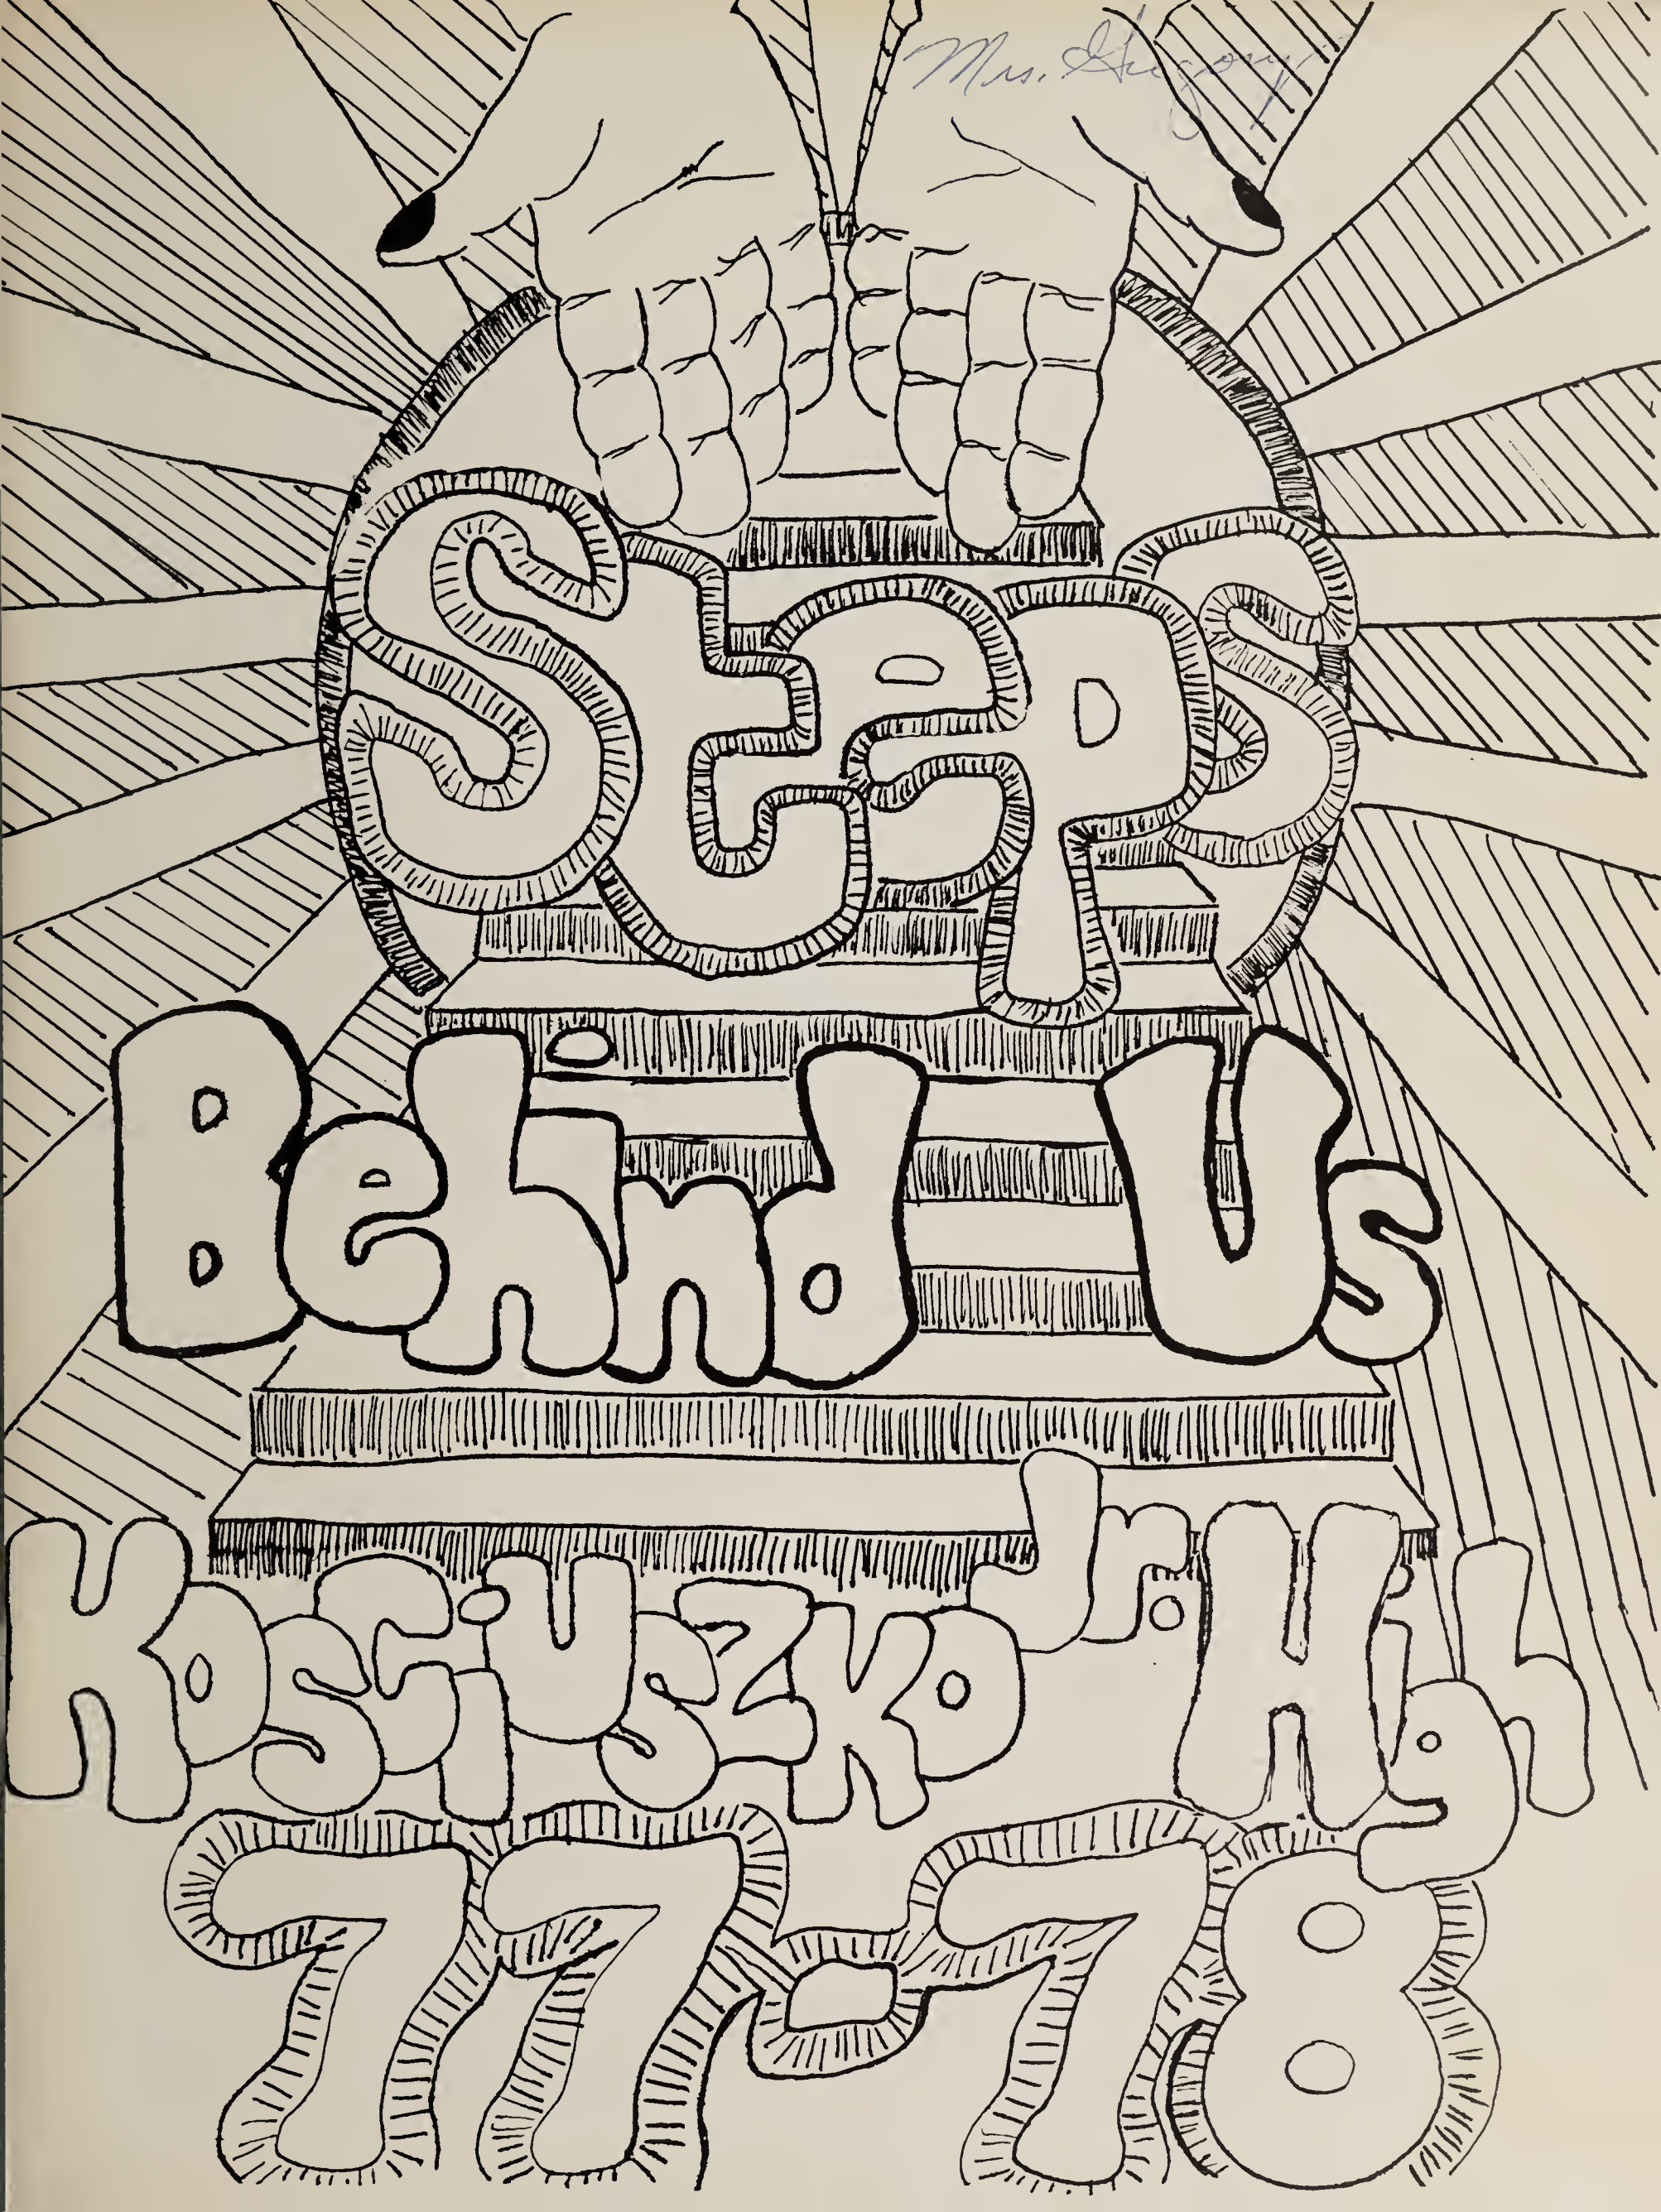 Mrs. Gregory
Steps
Behind Us
Kosciuszko Jr. High
77-78